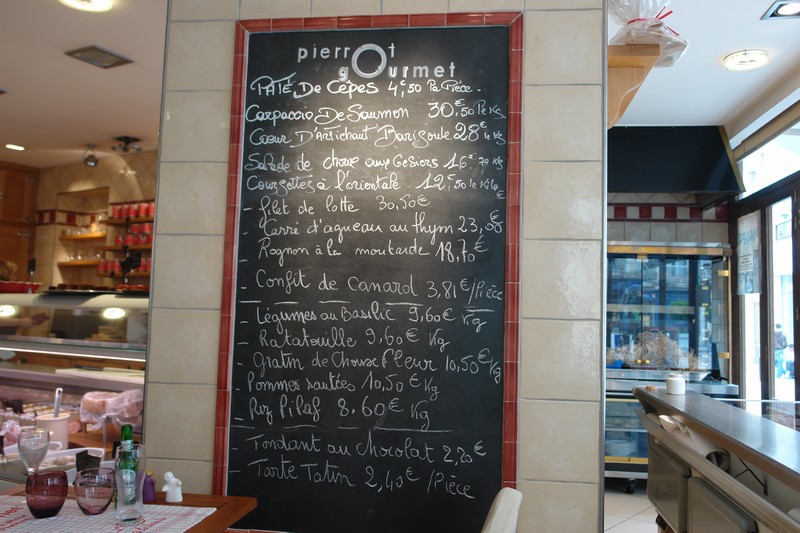 pierrot
gourmet
PÂTÉ De Cèpes 4€50 Pa Pièce.
Carpaccio De Saumon 30€,50 Pe Kg
Coeur D'Artichaut Barigoule 28€ le Kg
Salade de choux aux Gésiers 16€ le Kg
Courgettes à l'orientale 12€,50 le Kilo
- filet de lotte 30,50€
- Carré d'agneau au thym 23,00€
- Rognon à la moutarde 18,70€
- Confit de Canard 3,81€/Pièce
- Légumes au Basilic 9,60€ Kg
- Ratatouille 9,60€ Kg
- Gratin de Choux Fleur 10,50€ Kg
- Pommes sautées 10,50€ Kg
- Riz Pilaf 8,60€ Kg
- Fondant au chocolat 2,20€
- Tarte Tatin 2,40€/Pièce